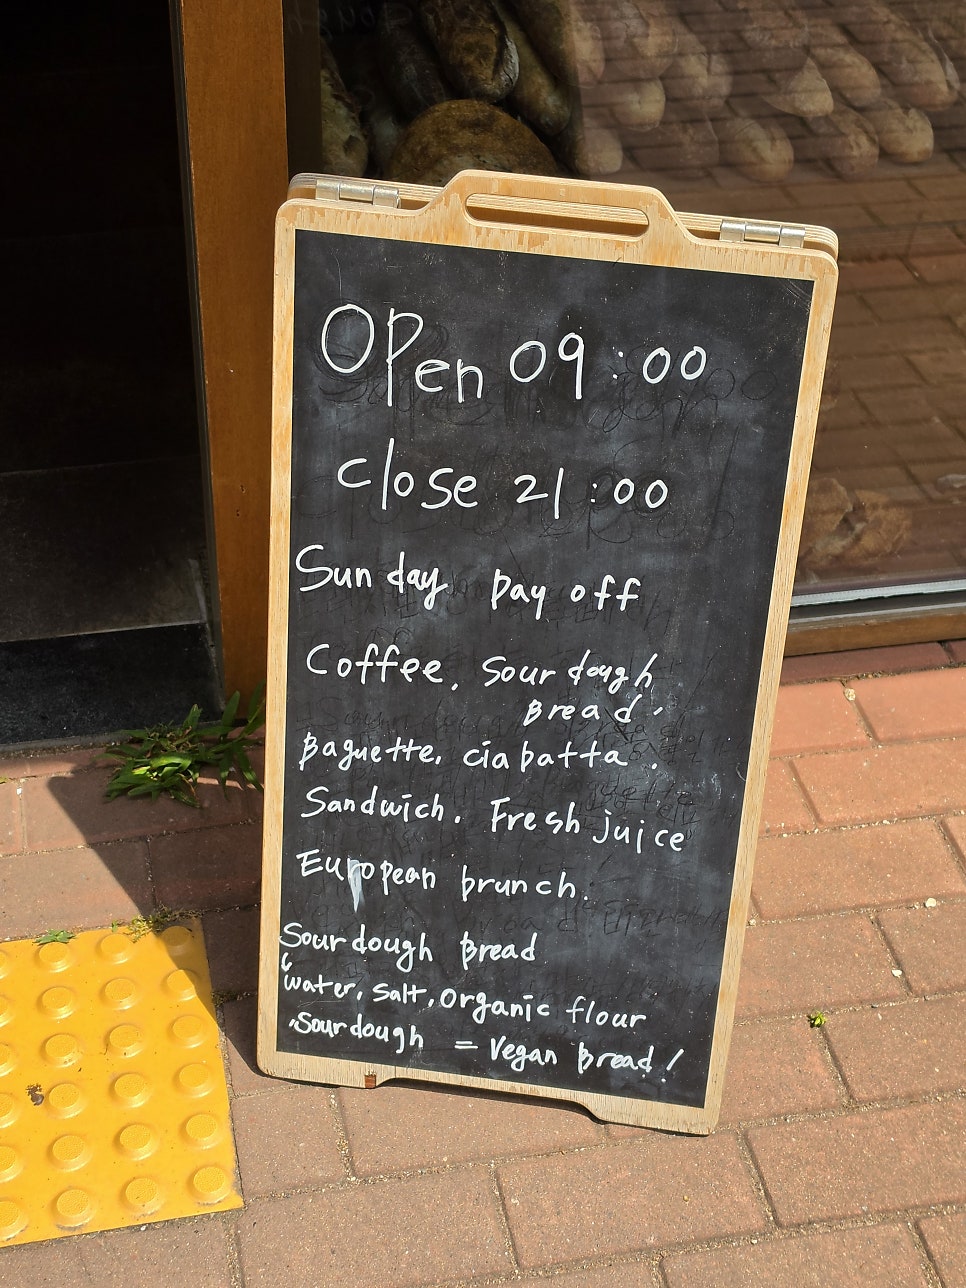 Open 09:00
close 21:00
Sunday pay off
Coffee, Sourdough
Bread,
Baguette, ciabatta.
Sandwich. Fresh juice
European brunch.
Sourdough Bread
water, salt, organic flour
,Sourdough = Vegan Bread!